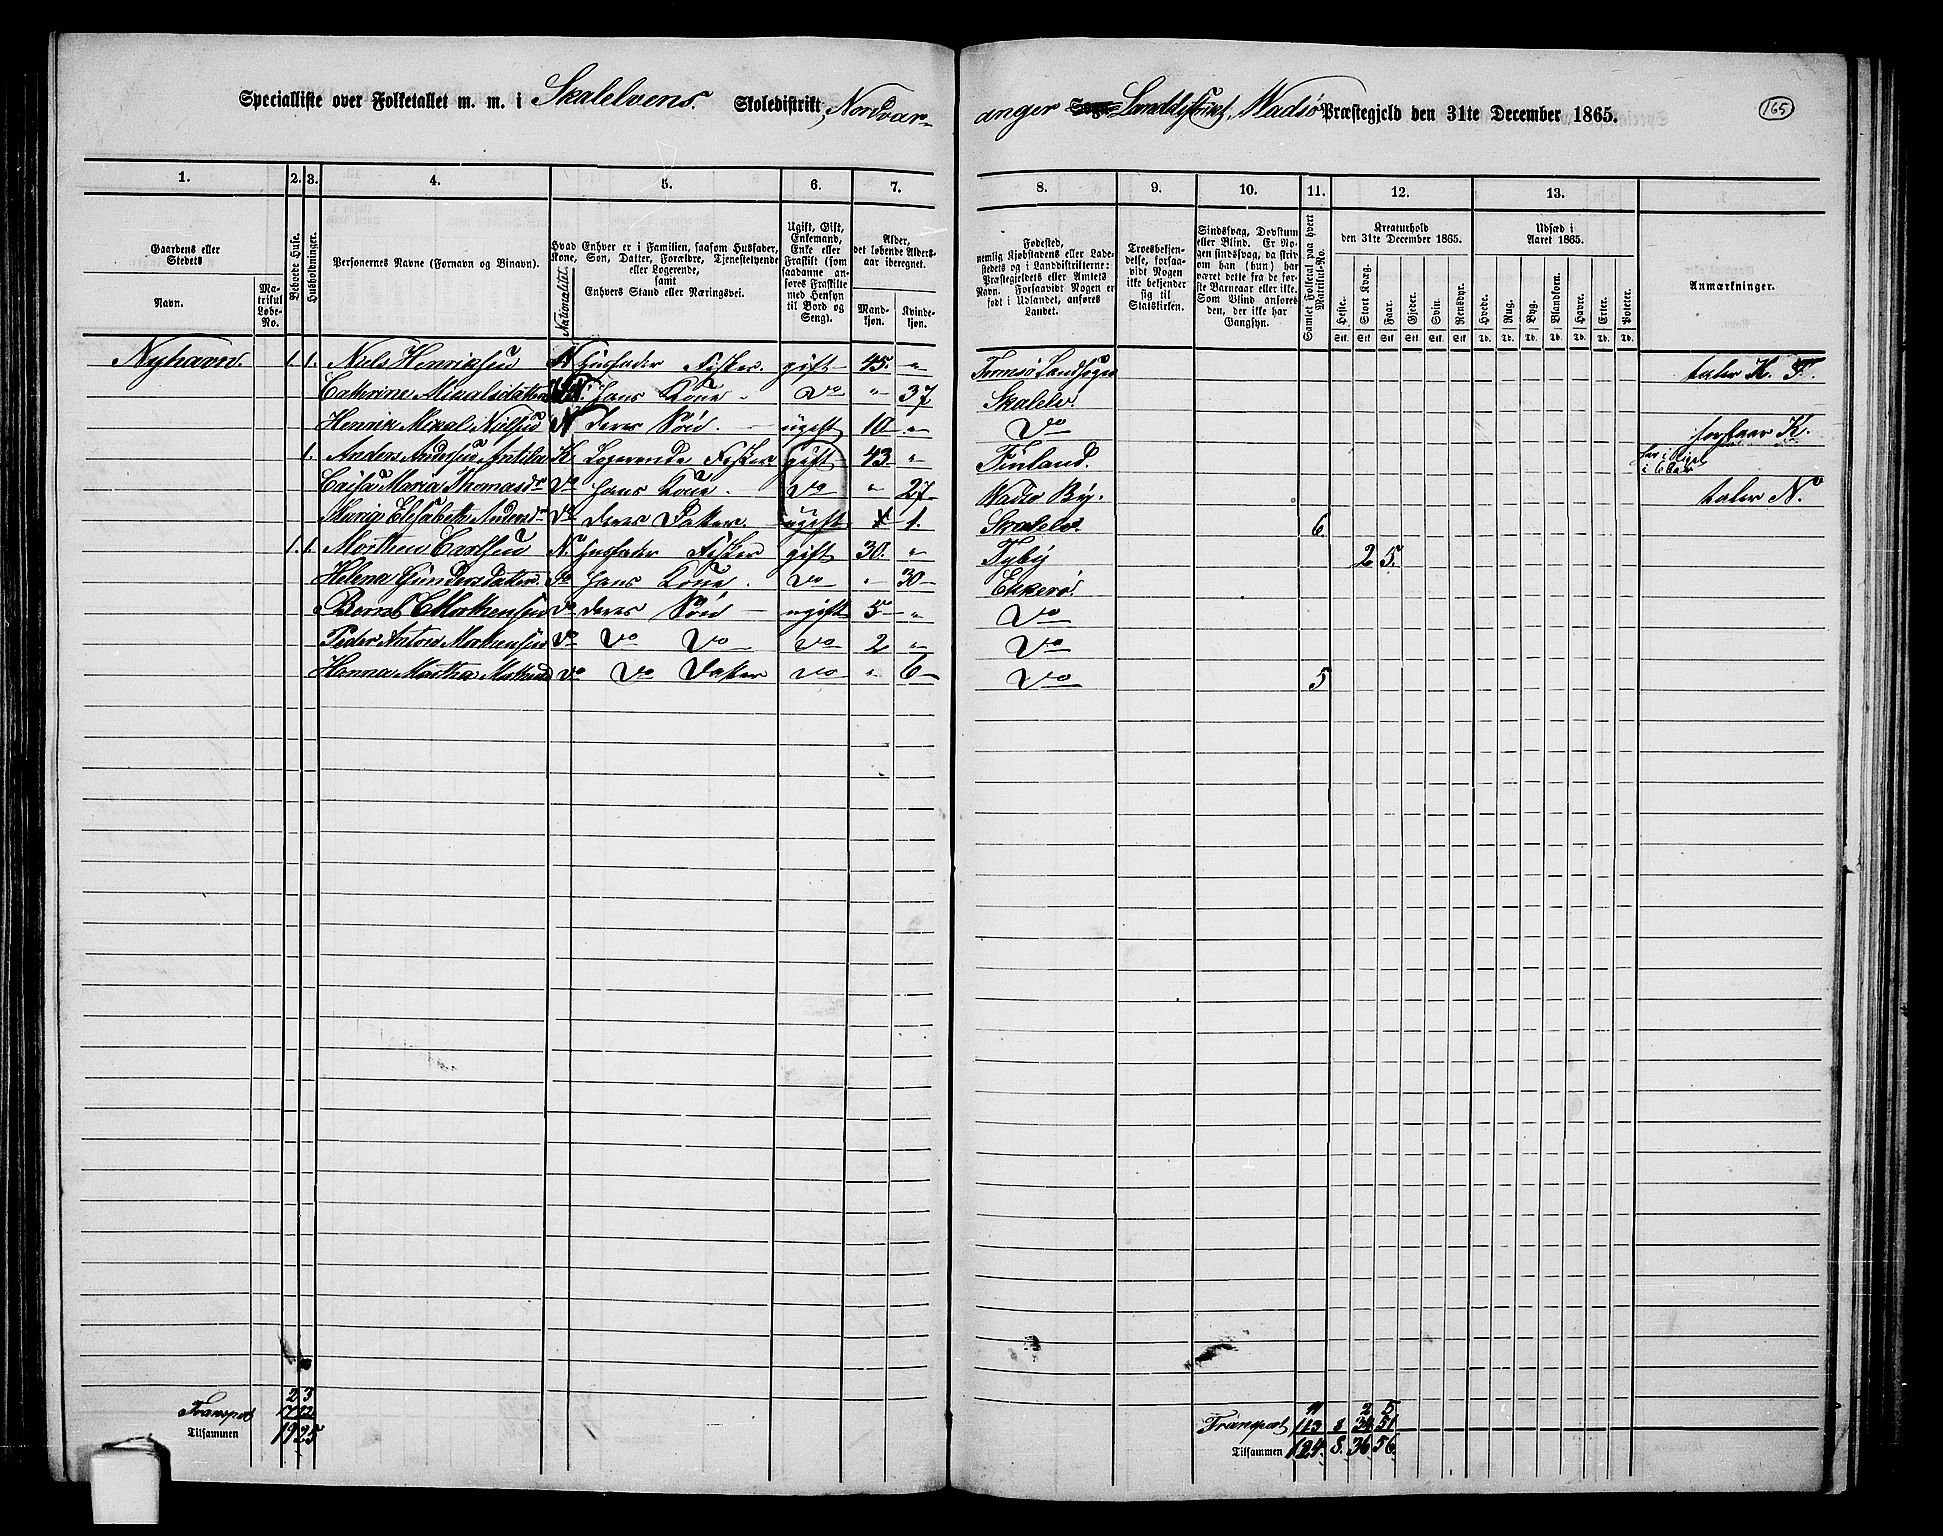 Specialliste over Folketallet m. m. i Skalelvens Skoledistrikt, Nordvar-
anger Landdistrikt, Wadsø Præstegjeld den 31te December 1865. 165
1. 2. 3. 4. 5. 6. 7. 8. 9. 10. 11. 12. 13.
Gaardens eller Stedets
Navn.
Matrikul Løbe-No.
Beboede Huse.
Husholdninger.
Personernes Navne (Fornavn og Binavn).
Nationalitet.
Hvad Enhver er i Familien, saasom Husfader, Kone, Søn, Datter, Forældre, Tjenestetyende eller Logerende, samt Enhvers Stand eller Næringsvei.
Ugift, Gift, Enkemand, Enke eller Fraskilt (som saadanne anføres Fraskilte med Hensyn til Bord og Seng).
Alder, det løbende Aldersaar iberegnet.
Mandkjøn. Kvindekjøn.
Fødested, nemlig Kjøbstadens eller Ladestedets og i Landdistrikterne: Præstegjeldets eller Amtets Navn. Forsaavidt Nogen er født i Udlandet, anføres Landet.
Troesbekjendelse, forsaavidt Nogen ikke bekjender sig til Statskirken.
Sindssvag, Døvstum eller Blind. Er Nogen sindssvag, da skrives han (hun) har været dette fra de første Barneaar eller ikke. Som Blind anføres den, der ikke har Gangsyn.
Samlet Folketal paa hvert Matrikul-No.
Kreaturhold den 31te December 1865.
Heste. Stort Kvæg. Faar. Gjeder. Svin. Rensdyr.
Stk. Stk. Stk. Stk. Stk. Stk.
Udsæd i Aaret 1865.
Hvede. Rug. Byg. Blandkorn. Havre. Erter. Poteter.
Td. Td. Td. Td. Td. Td. Td.
Anmærkninger.
Nyhavn. 1. 1. Niels Henriksen N Husfader Fisker gift 45. " Tromsø Landsogn taler K. F.
Cathrine Mikalsdatter hans Kone Do " 37 Skalelv.
Henrik Mikal Nielsen N deres Søn ugift 10 " Do forstaar K.
1. Anders Andersen K. Logerende Fisker gift 43. " Finland.
Caisa Maria Thomasdr Do hans Kone. Do " 27 Wadsø By. taler N.
Marig Elisabeth Andersdr Do deres Datter. ugift 1. Skalelv. 6
1. 1. Morthen Carlsen N. Husfader Fisker gift 30. " Tyby 2 5.
Helena Gundersdatter. Do hans Kone. Do " 30 Ekkerø.
Bernt Morthensen Do deres Søn ugift 5 " Do
Peder Anton Morthensen Do Do Do Do 2 " Do
Hanna Martha Do Do Datter Do " 6 Do 5
2 3 11 2 5
Transport 17 22 Transport 113 8 34 51
Tilsammen 19 25 Tilsammen 124. 8. 36 56